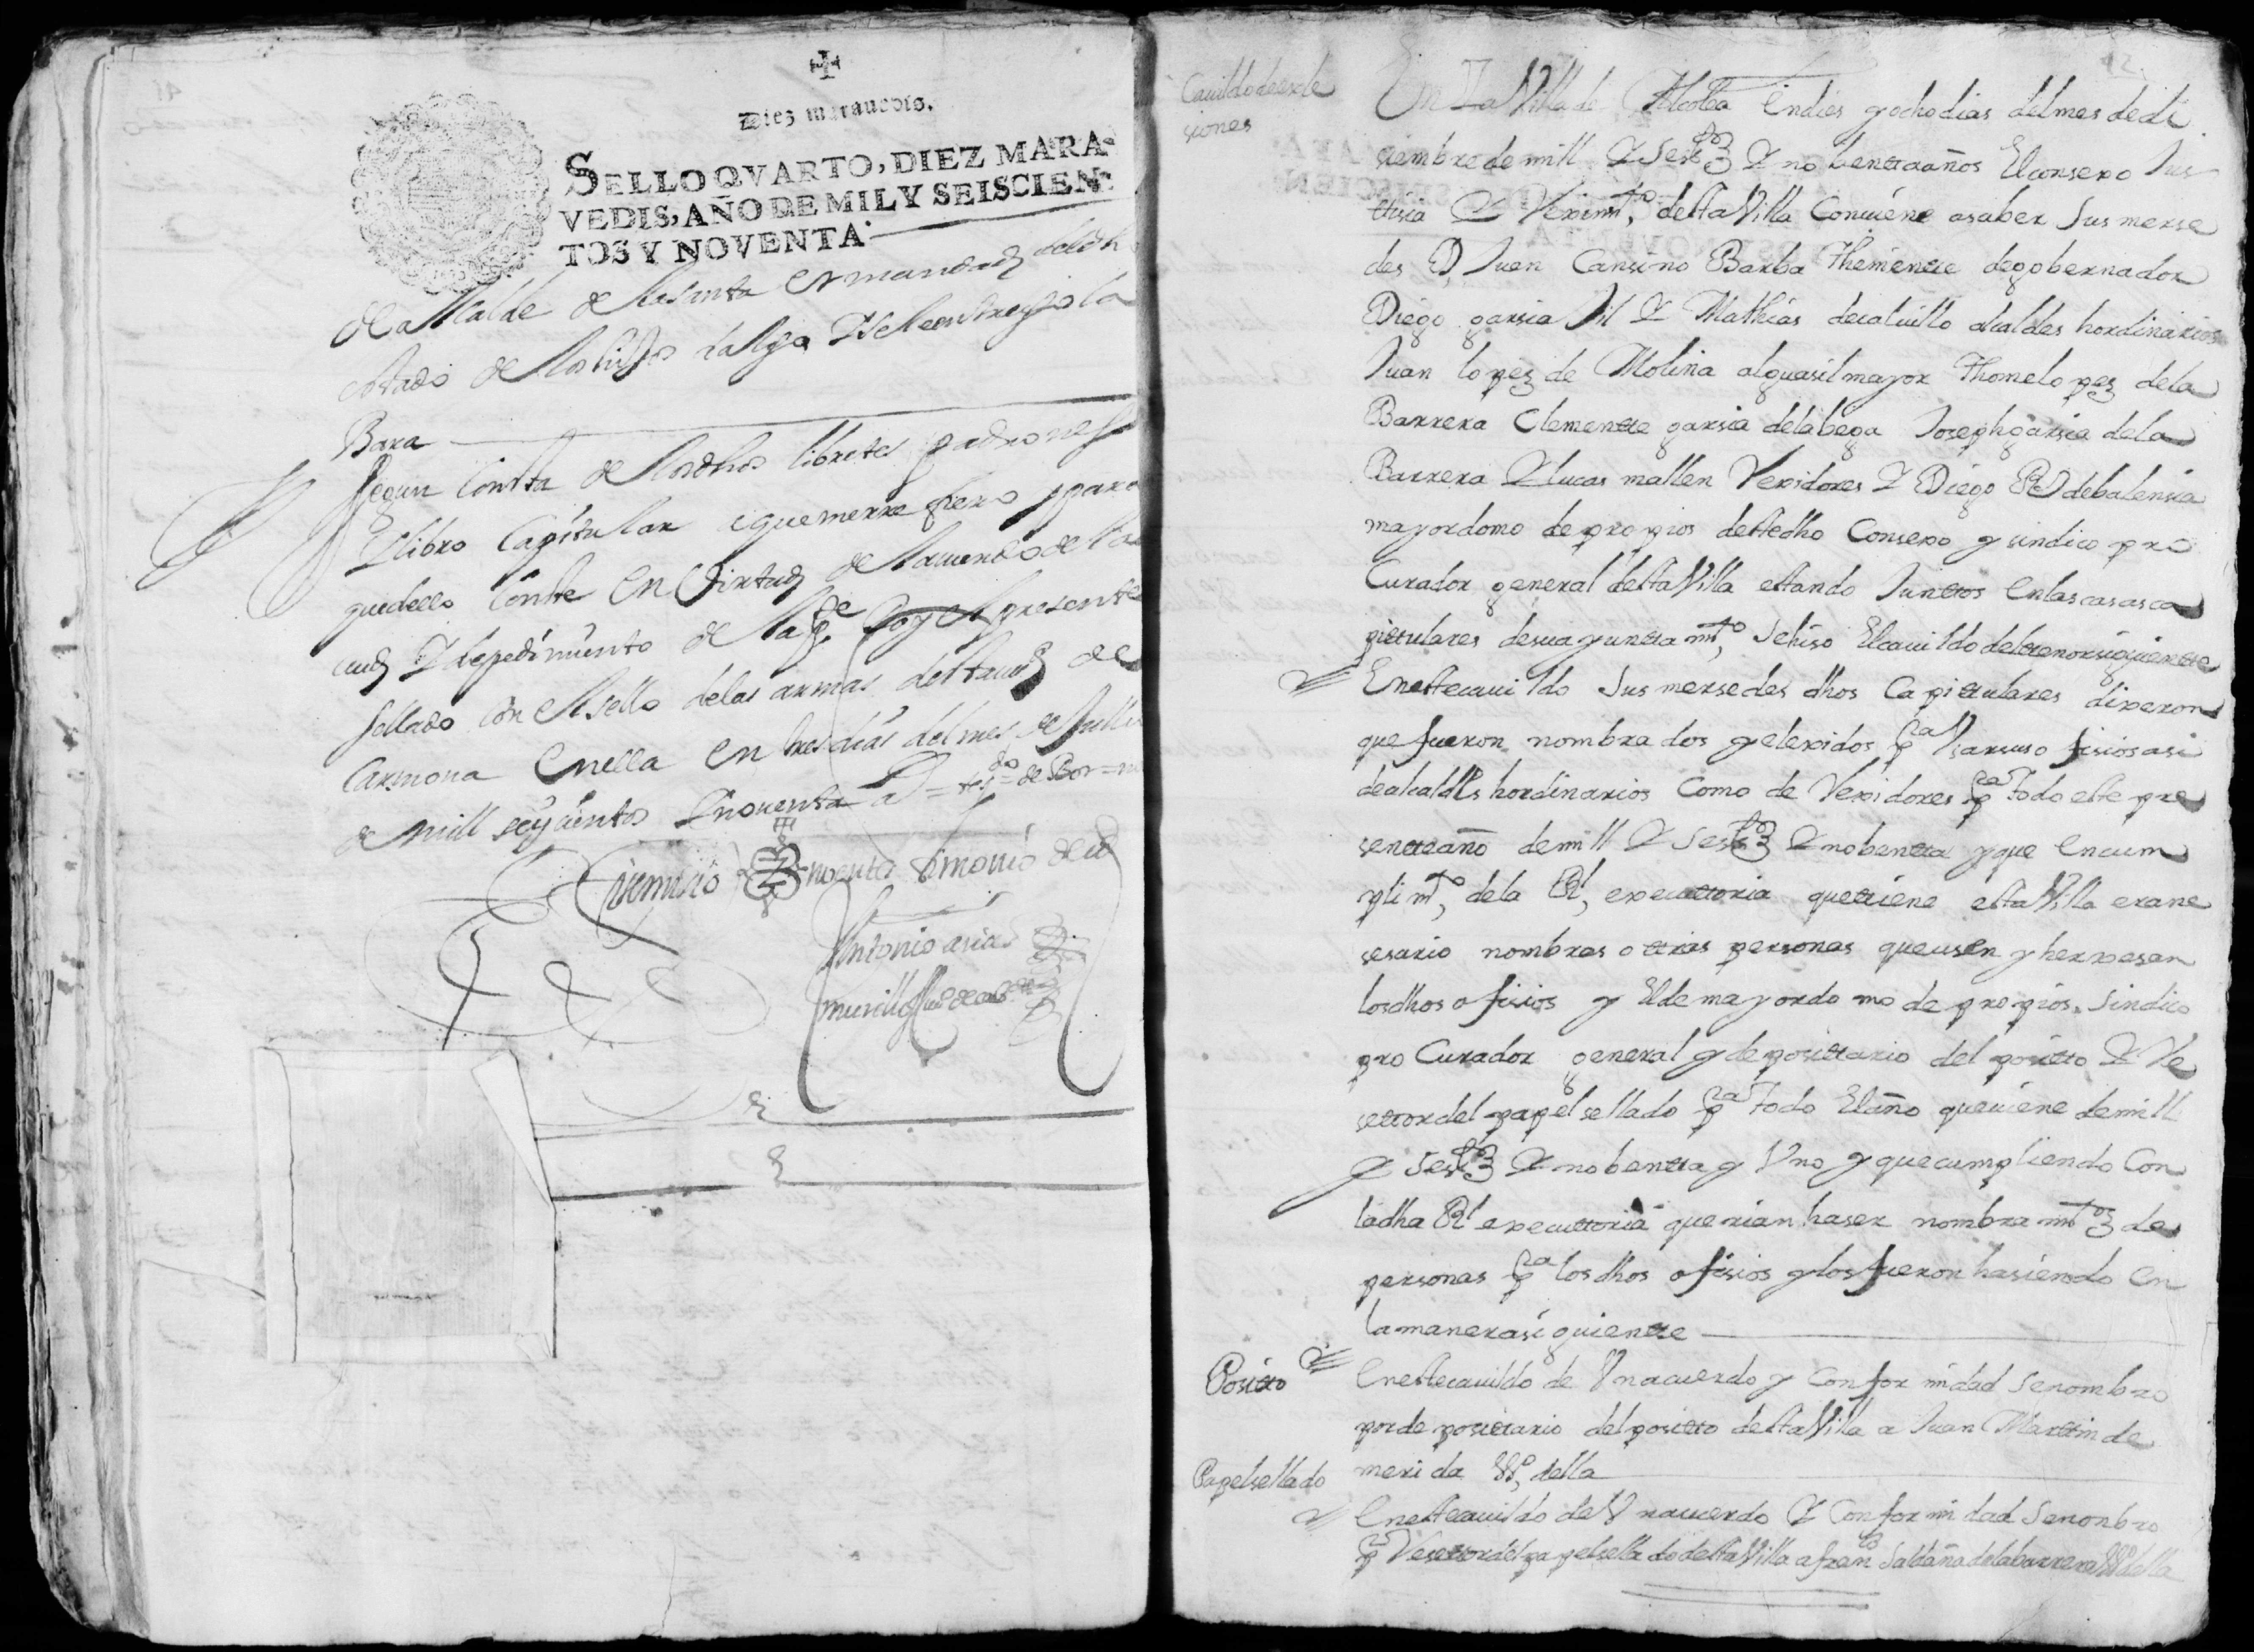 Diez marauedis.
SELLO QVARTO, DIEZ MARA-
VEDIS, AÑO DE MIL Y SEISCIEN-
TOS Y NOVENTA.
de alcalde de la santa ermandad
estado de los hijos dalgo y se le entrego la
Bara
segun consta de los dhos libretes padrones
y libro Capitular que me rrefiero y para
que dello conste en Virtud de
y de pedimiento de la pte doy el presente
sellado con el sello de las armas desta ciud de
Carmona en ella en tres dias del mes de Jullio
de mill seisçientos y noventa a
Antonio arias
murillo
12
Cauildo de ele
siones
En La Villa de Alcolea en dies y ocho dias del mes de di
siembre de mill y seistos y nobentta años El consexo Jus
ttisia y Reximto, desta Villa Conuiene a saber sus merse
des D Juan Cansino Barba Theniente de gobernador
Diego garsia Gil y Mathias de calvillo alcaldes hordinarios
Juan lopez de Molina alguasil mayor Thome lopez de la
Barrera Clemente garsia de la bega Joseph garsia de la
Barrera y lucas mallen Rexidores y Diego Rs de balensia
mayordomo de propios deste dho Consexo y sindico pro
Curador general desta Villa estando Junttos en las casas ca
pittulares de su ayuntta mto, se hiso El cauildo del ttenor siguientte
En este cauildo sus mersedes dhos Capittulares dixeron
que fueron nombrados y elexidos pa Vsar sus ofisios asi
de alcaldes hordinarios Como de Rexidores pa todo este pre
sentte año de mill y seistos y nobentta y que en cum
plimto, de la Rl, executtoria que ttiene esta Villa era ne
sesario nombrar ottras personas que usen y herxesan
los dhos ofisios y El de mayordomo de propios. sindico
pro Curador general y deposittario del positto y Re
settor del papel sellado pa todo El año que uiene de mill
y seistos y nobentta y Vno y que cumpliendo Con
la dha Rl executtoria querian haser nombra mtos de
personas pa los dhos ofisios y los fueron hasiendo en
la manera siguientte
Positto
En este cauildo de Vn acuerdo y Conformidad se nombro
por deposittario del positto desta Villa a Juan Marttin de
merida Vo, della
Papel sellado
En este cauildo de Vn acuerdo y Conformidad se nonbro
pr Resettor del papel sellado desta Villa a franco Saldaña de la barrera Vo della